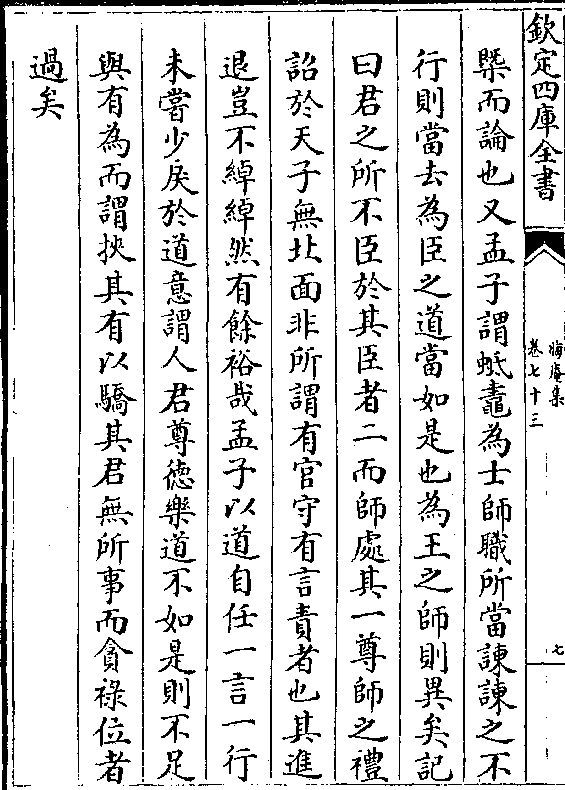 欽定四庫全書
晦庵集
卷七十三
七
槩而論也又孟子謂蚳鼃為士師職所當諫諫之不
行則當去為臣之道當如是也為王之師則異矣記
曰君之所不臣於其臣者二而師處其一尊師之禮
詔於天子無北面非所謂有官守有言責者也其進
退豈不綽綽然有餘裕哉孟子以道自任一言一行
未嘗少戾於道意謂人君尊德樂道不如是則不足
與有為而謂挾其有以驕其君無所事而貪祿位者
過矣